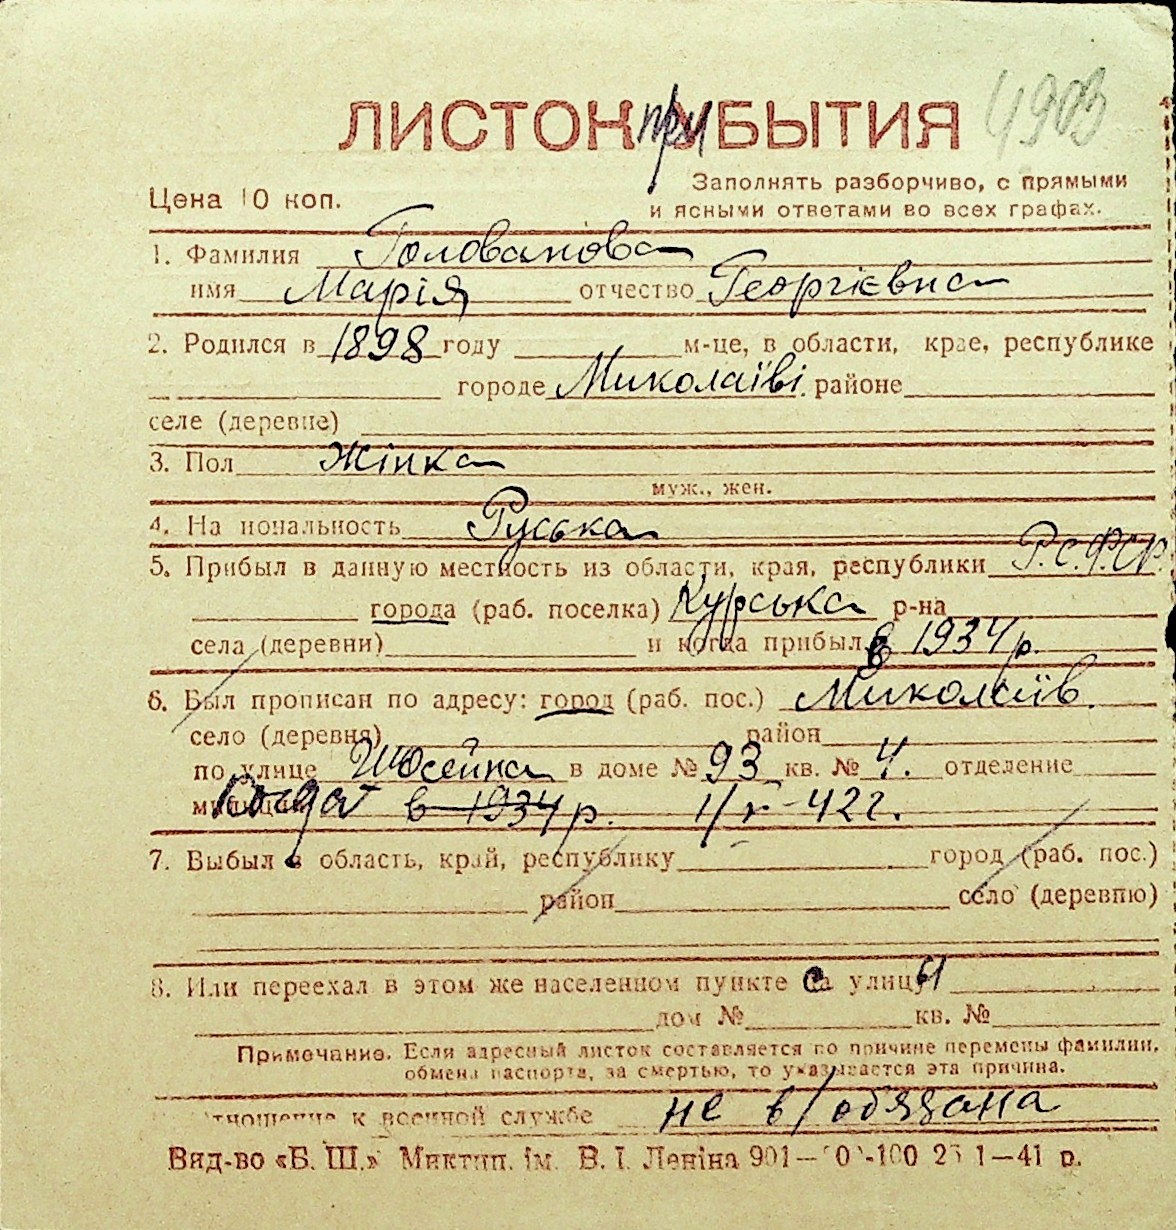 ЛИСТОК при УБЫТИЯ 4903
Цена 10 коп.
Заполнять разборчиво, с прямыми
и ясными ответами во всех графах.
1. Фамилия Голованова
имя Марія отчество Георгієвна
2. Родился в 1898 году м-це, в области, крае, республике
городе Миколаїві районе
селе (деревне)
3. Пол Жінка
муж., жен.
4. На иональность Руська
5. Прибыл в данную местность из области, края, республики Р.С.Ф.С.Р.
города (раб. поселка) Курська р-на
села (деревни) и когда прибыл в 1934 р.
6. Был прописан по адресу: город (раб. пос.) Миколаїв.
село (деревня) район
по улице Шосейна в доме № 93 кв. № 4. отделение
милиции в 1934 р. 1/V-42г.
7. Выбыл в область, край, республику город (раб. пос.)
район село (деревню)
8. Или переехал в этом же населенном пункте са улицы
дом № кв. №
Примечание. Если адресный листок составляется по причине перемены фамилии,
обмена паспорта, за смертью, то указывается эта причина.
тношение к военной службе не в/обязана
Вид-во «Б. Ш.» Миктип. ім. В. І. Леніна 901— 0 -100 25 1—41 р.